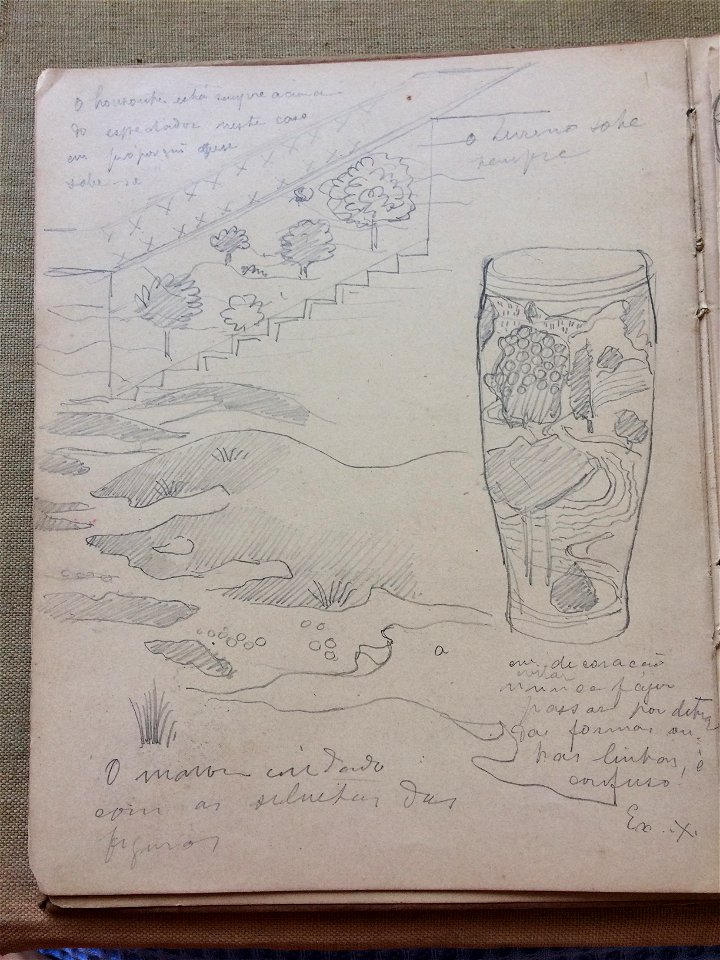 O horisonte está sempre acima
do espectador neste caso
em proporção que
sobe-se
o terreno sobe
sempre
a
em decoração
evitar
nunca fazer
passar por detraz
das formas ou-
tras linhas, é
confuso!
Ex. X.
O maior cuidado
com as silhuetas das
figuras